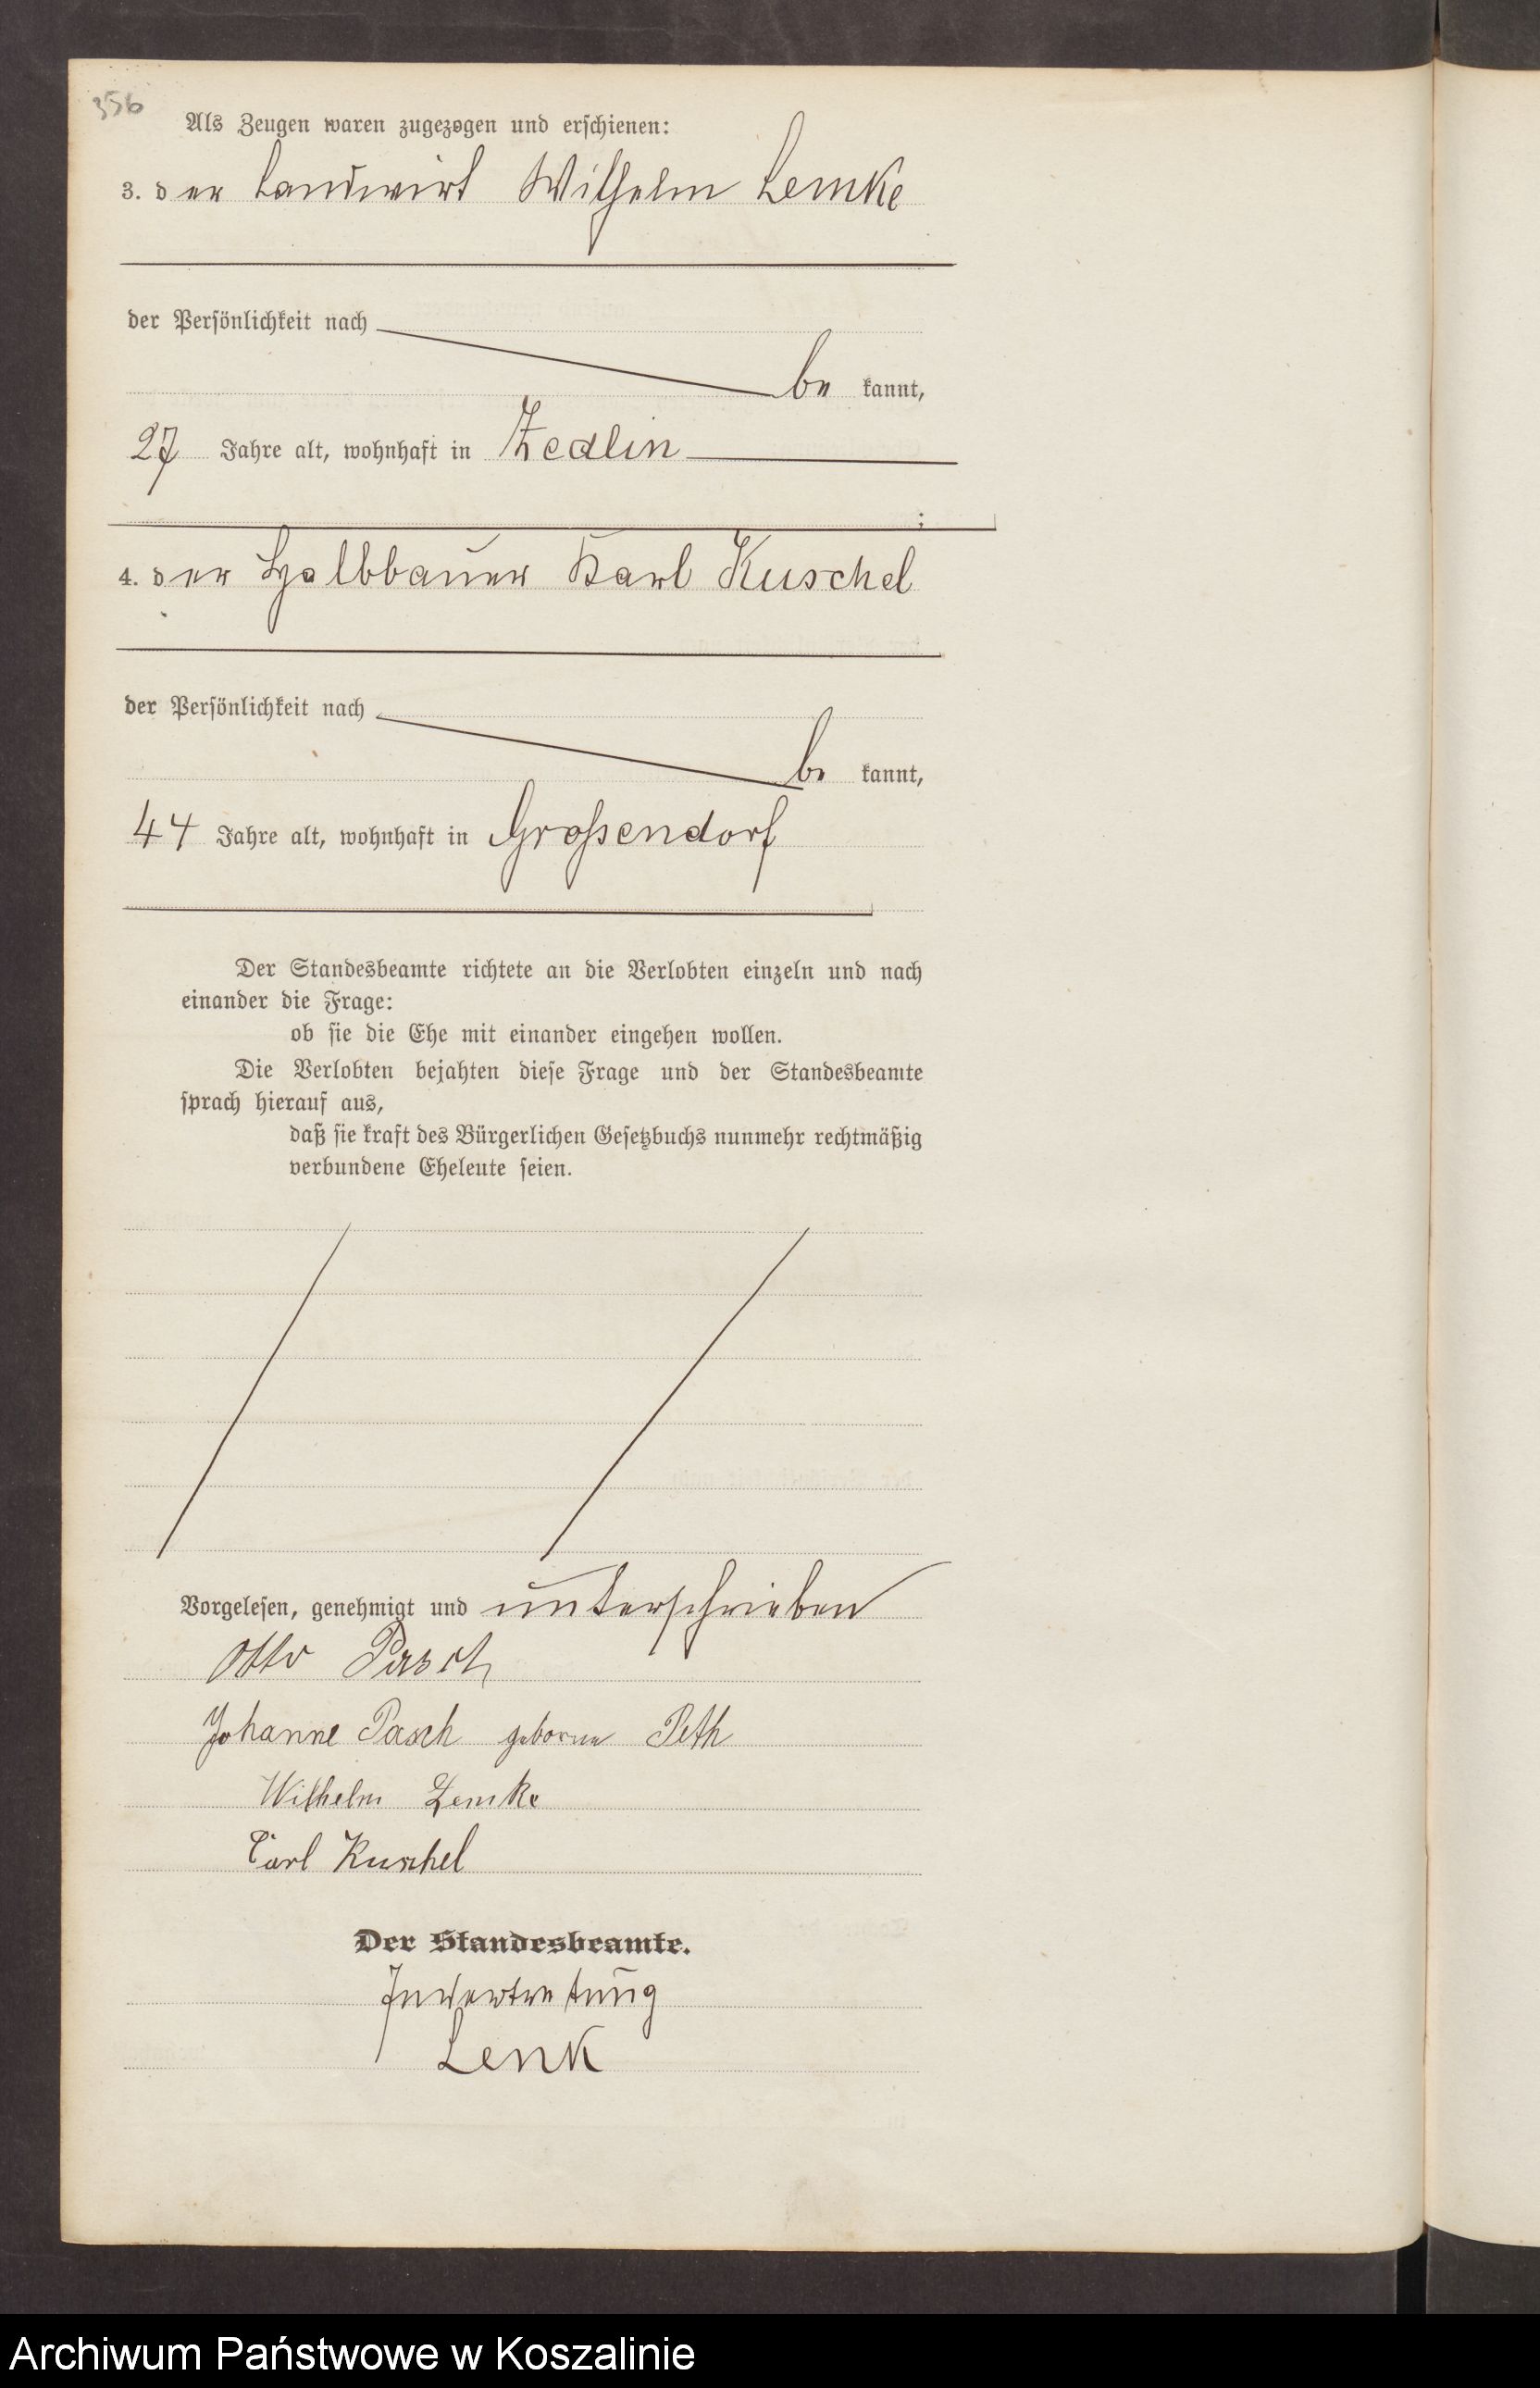 356
Als Zeugen waren zugezogen und erschienen:
3. der Landwirt Wilhelm Lemke
der Persönlichkeit nach
be kannt,
27 Jahre alt, wohnhaft in Zedlin
;
4. der Halbbauer Karl Kuschel
der Persönlichkeit nach
be kannt,
44 Jahre alt, wohnhaft in Großendorf
Der Standesbeamte richtete an die Verlobten einzeln und nach
einander die Frage:
ob sie die Ehe mit einander eingehen wollen.
Die Verlobten bejahten diese Frage und der Standesbeamte
sprach hierauf aus,
daß sie kraft des Bürgerlichen Gesetzbuchs nunmehr rechtmäßig
verbundene Eheleute seien.
Vorgelesen, genehmigt und unterschrieben
Otto Pasch
Johanne Pasch geborne Peth
Wilhelm Lemke
Carl Kuschel
Der Standesbeamte.
In Vertretung
Lenk
Archiwum Państwowe w Koszalinie